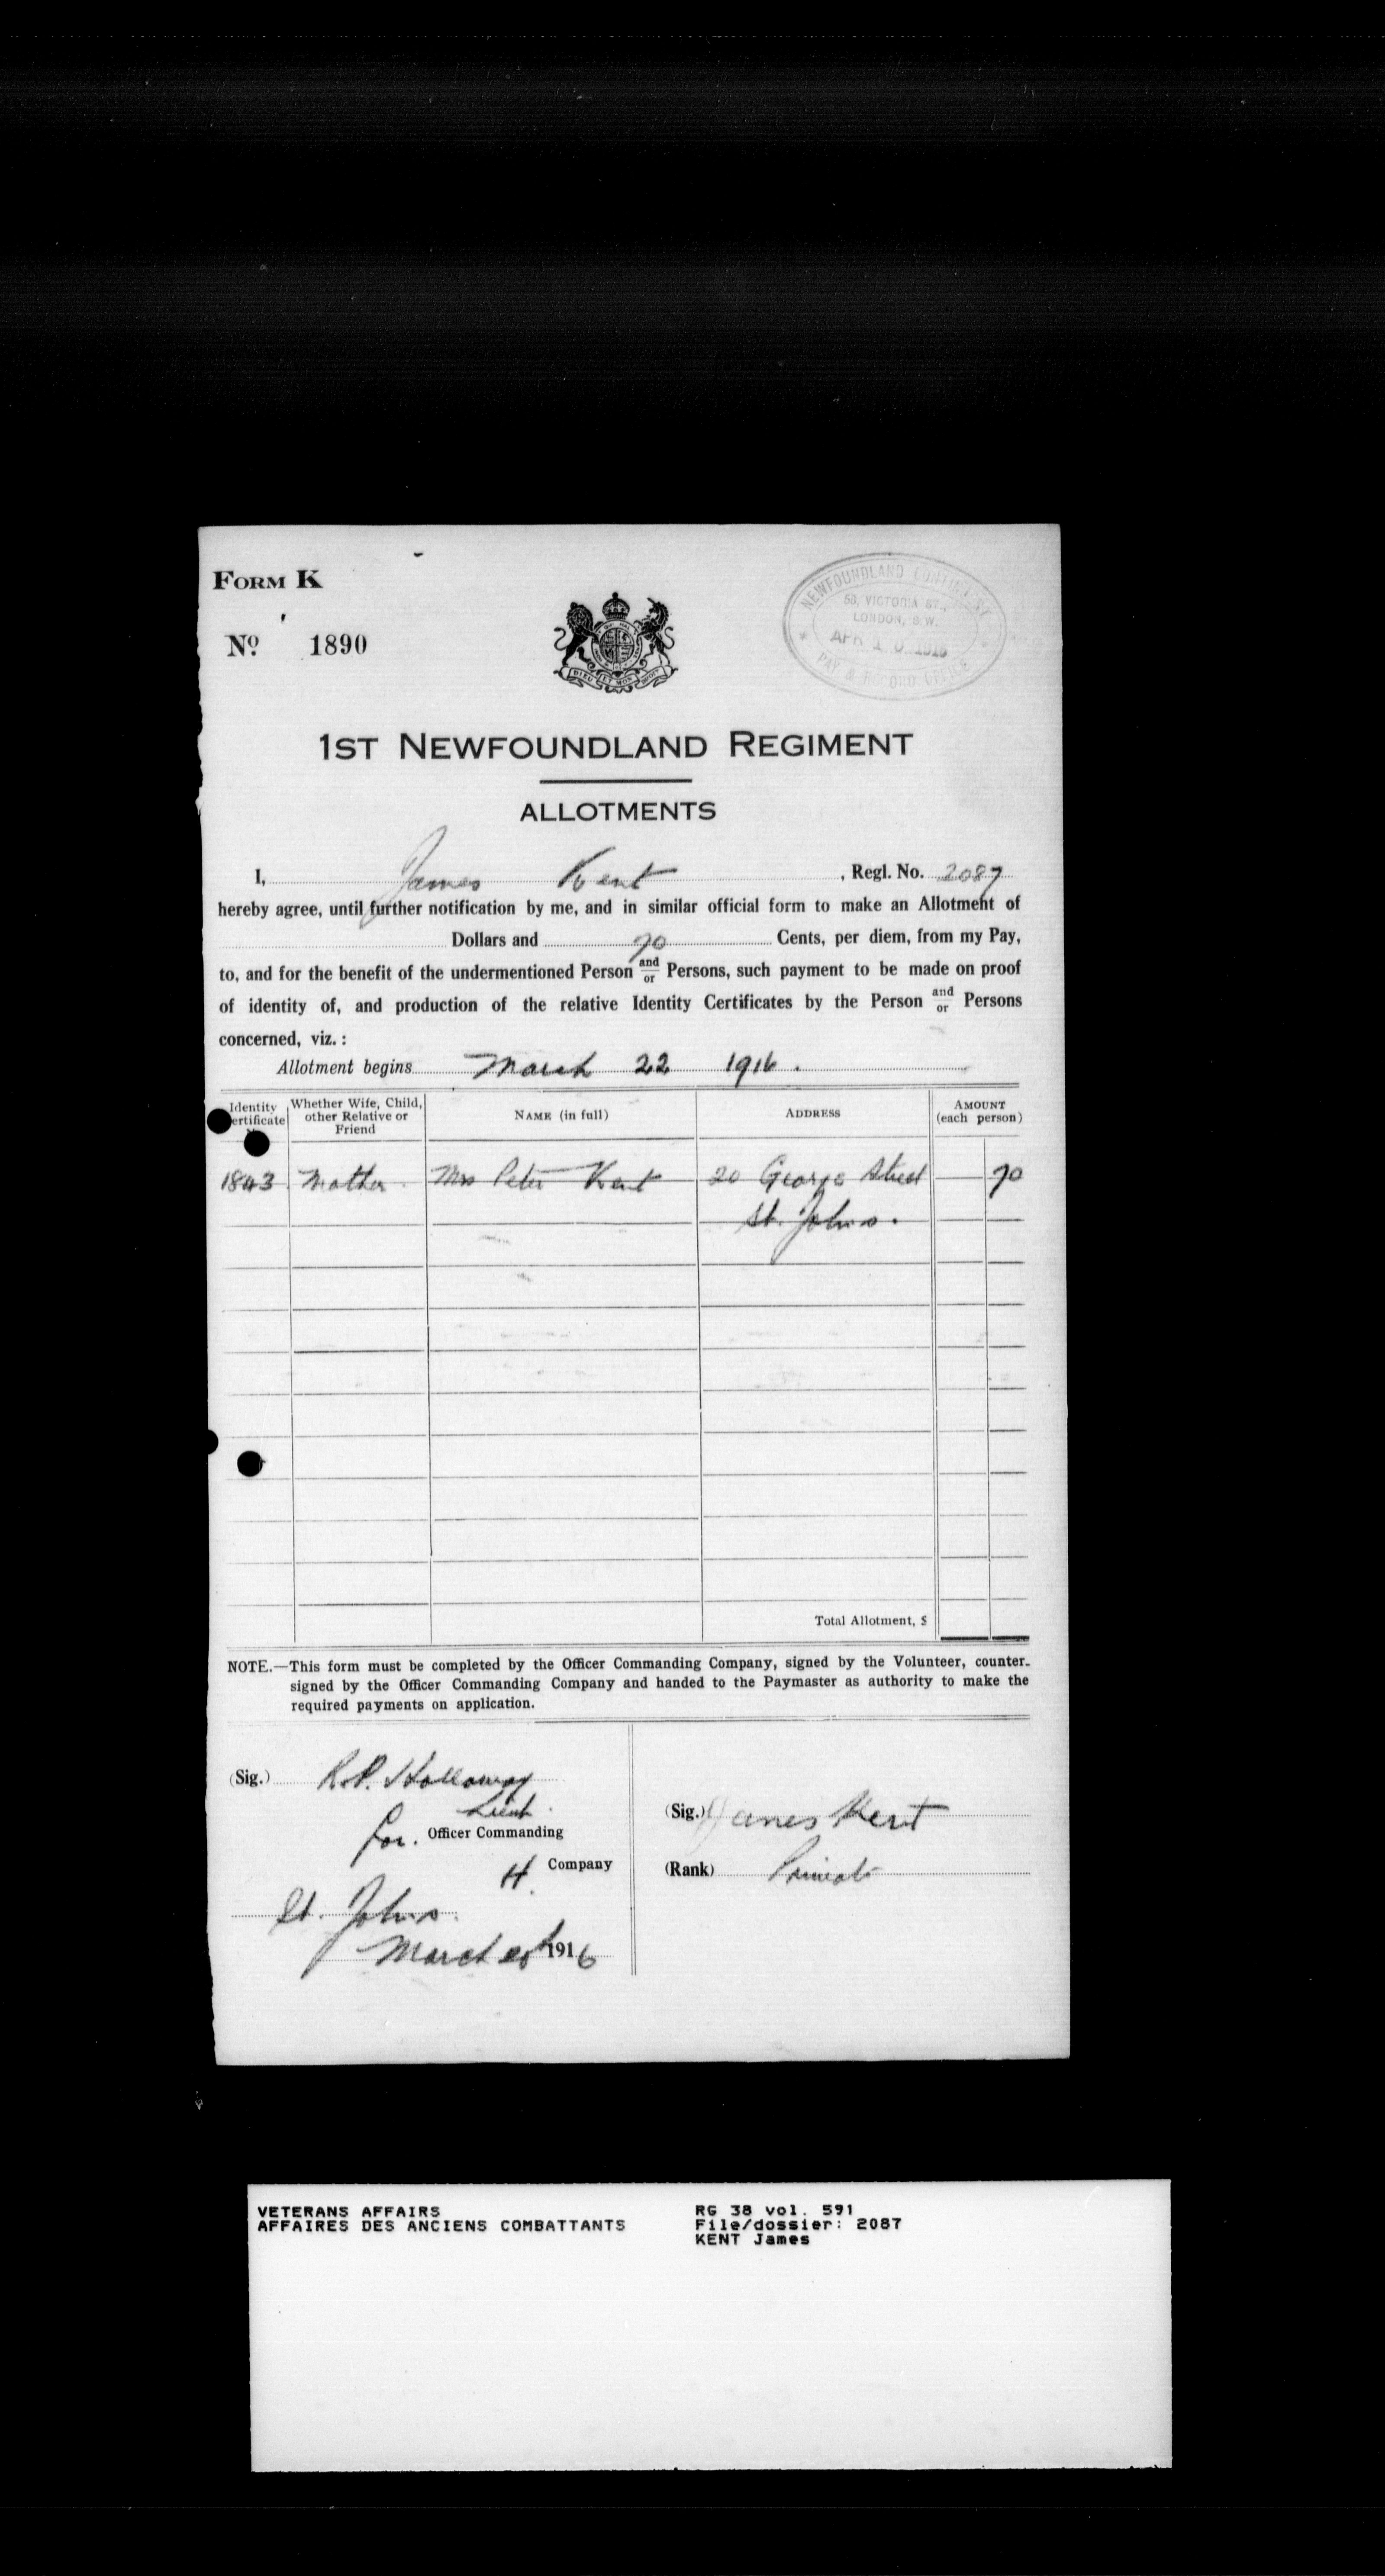 FORM K
NEWFOUNDLAND CONTINGENT
53, VICTORIA ST.,
LONDON, S.W.
APR 10 1916
PAY & RECORD OFFICE
No. 1890
DIEU ET MON DROIT
1ST NEWFOUNDLAND REGIMENT
ALLOTMENTS
I, James Kent, Regl. No. 2087
hereby agree, until further notification by me, and in similar official form to make an Allotment of
Dollars and 70 Cents, per diem, from my Pay,
to, and for the benefit of the undermentioned Person and/or Persons, such payment to be made on proof
of identity of, and production of the relative Identity Certificates by the Person and/or Persons
concerned, viz.:
Allotment begins March 22 1916.
Identity Whether Wife, Child, NAME (in full) ADDRESS AMOUNT
ertificate other Relative or (each person)
Friend
1843 Mother Mrs Peter Kent 20 George Street 70
St. John's.
Total Allotment, $
NOTE.—This form must be completed by the Officer Commanding Company, signed by the Volunteer, counter-
signed by the Officer Commanding Company and handed to the Paymaster as authority to make the
required payments on application.
(Sig.) R.P. Holloway
Lieut.
for. Officer Commanding
H. Company
St. John's.
March 1916
(Sig.) James Kent
(Rank) Private
VETERANS AFFAIRS
AFFAIRES DES ANCIENS COMBATTANTS
RG 38 vol. 591
File/dossier: 2087
KENT James